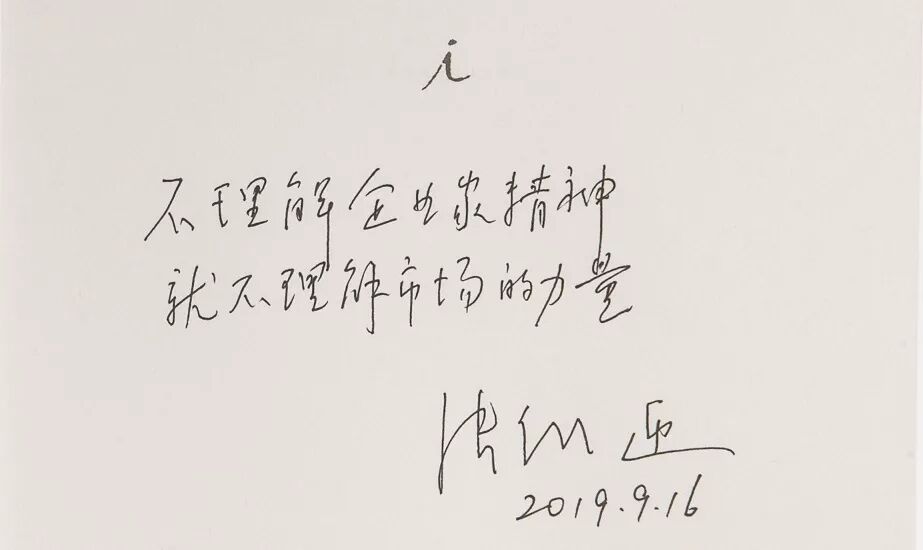 i
不理解企业家精神
就不理解市场的力量
张维迎
2019.9.16